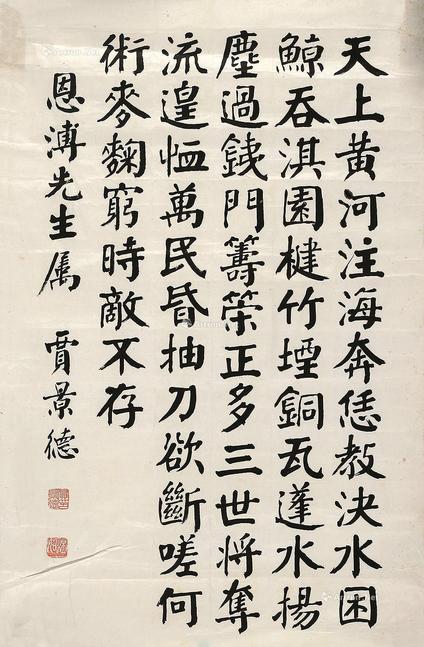 天上黄河注海奔恁教決水困
鯨吞淇園楗竹堙銅瓦蓬水揚
塵過銕門籌策正多三世將奪
流遑恤萬民昏抽刀欲斷嗟何
術麥麴窮時敵不存
恩溥先生属 賈景德